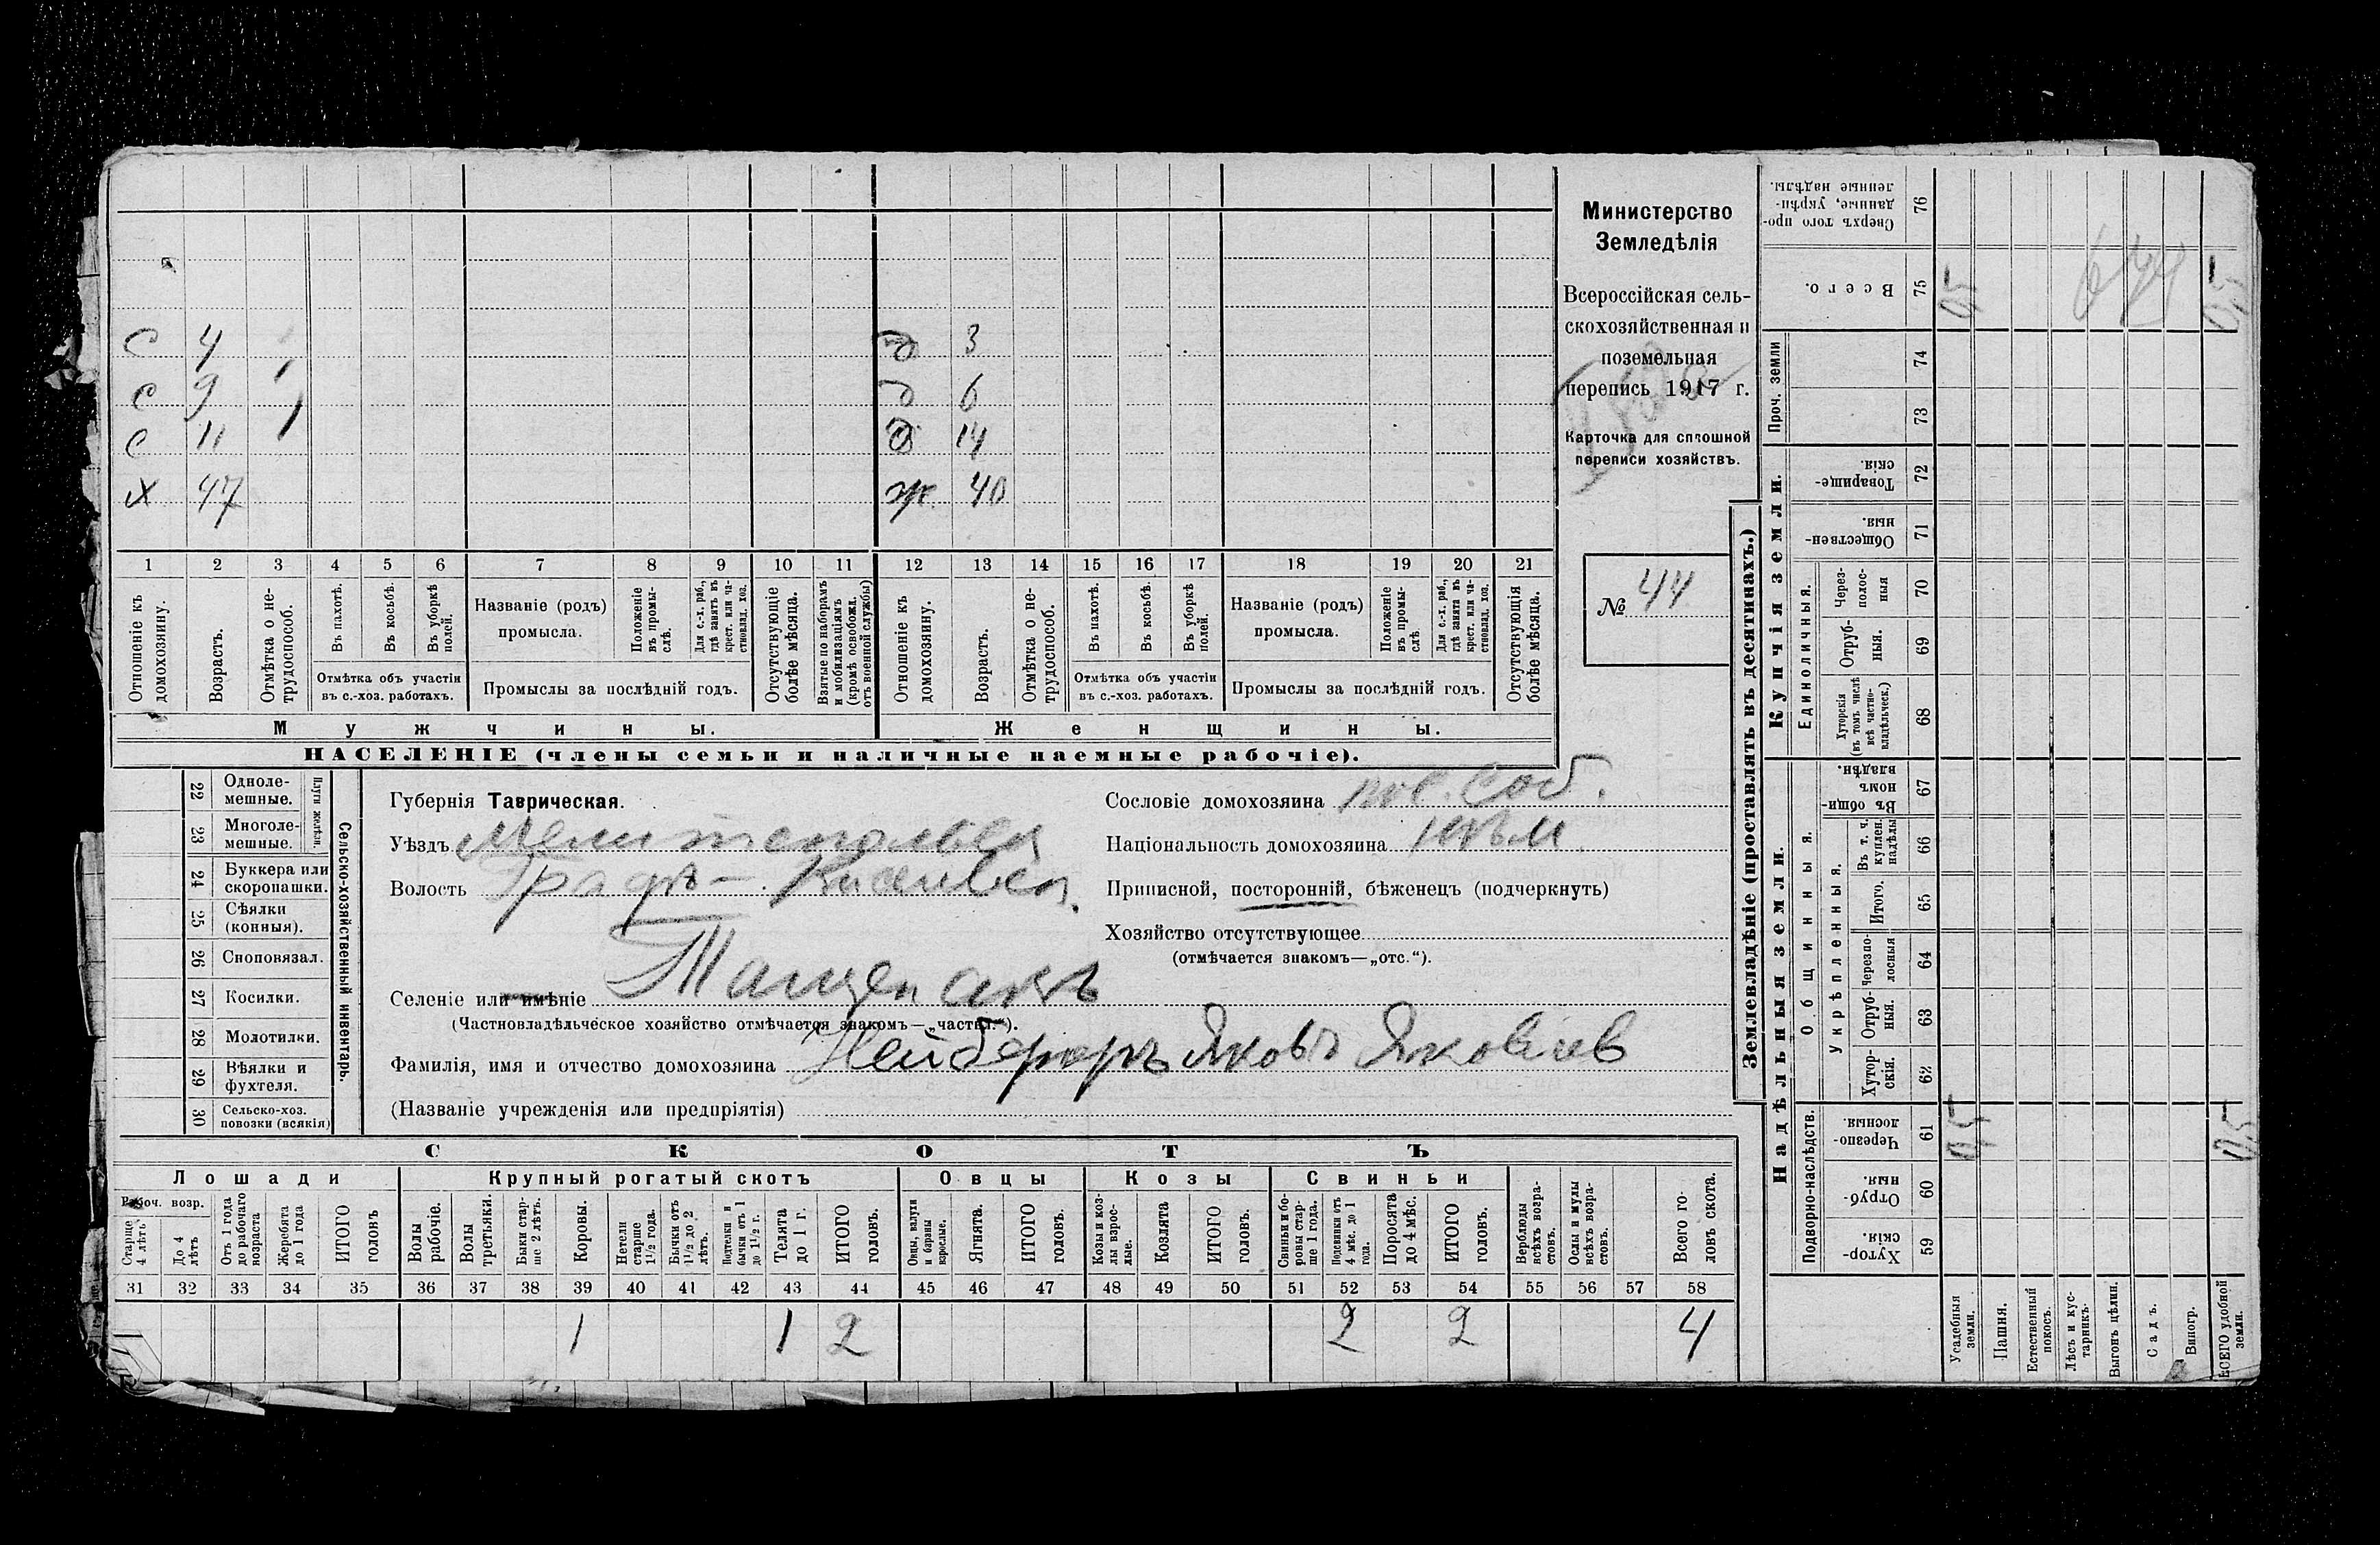 С 4 д 3
С 9 д 6
С 11 д 14
Х 47 ж 40
1 2 3 4 5 6 7 8 9 10 11 12 13 14 15 16 17 18 19 20 21
Отношеніе къ домохозяину.
Возрастъ.
Отмѣтка о не-трудоспособ.
Въ пахотѣ.
Въ косьбѣ.
Въ уборкѣ полей.
Отмѣтка объ участіи въ с.-хоз. работахъ.
Названіе (родъ) промысла.
Положеніе въ промы-слѣ.
Для с.-х. раб., гдѣ занятъ въ крест. или ча-стновлад. хоз.
Промыслы за послѣдній годъ.
Отсутствующіе болѣе мѣсяца.
Взятые по наборамъ и мобилизаціямъ (кромѣ освобожд. отъ военной службы)
Отношеніе къ домохозяину.
Возрастъ.
Отмѣтка о не-трудоспособ.
Въ пахотѣ.
Въ косьбѣ.
Въ уборкѣ полей.
Отмѣтка объ участіи въ с.-хоз. работахъ.
Названіе (родъ) промысла.
Положеніе въ промы-слѣ
Для с.-х. раб., гдѣ занята въ крест. или ча-стновлад. хоз.
Промыслы за послѣдній годъ.
Отсутствующія болѣе мѣсяца.
Мужчины. Женщины.
НАСЕЛЕНІЕ (члены семьи и наличные наемные рабочіе).
Министерство
Земледѣлія
Всероссійская сель-
скохозяйственная и
поземельная
перепись 1917 г.
Карточка для сплошной
переписи хозяйствъ.
№ 44
22 Одноле-мешные.
23 Многоле-мешные.
Плуги желѣзн.
24 Буккера или скоропашки.
25 Сѣялки (конныя).
26 Сноповязал.
27 Косилки.
28 Молотилки.
29 Вѣялки и фухтеля.
30 Сельско-хоз. повозки (всякія)
Сельско-хозяйственный инвентарь.
Губернія Таврическая.
Уѣздъ Мелитопольск
Волость
Селеніе или имѣніе Тащенакъ
(Частновладѣльческое хозяйство отмѣчается знакомъ—„частвл.“).
Фамилія, имя и отчество домохозяина Нейфербръ Яковъ Яковлев
(Названіе учрежденія или предпріятія)
Сословіе домохозяина пос. соб.
Національность домохозяина нѣм
Приписной, посторонній, бѣженецъ (подчеркнуть)
Хозяйство отсутствующее
(отмѣчается знакомъ—„отс.“).
СКОТЪ
Лошади Крупный рогатый скотъ Овцы Козы Свиньи
Рабоч. возр.
Старше 4 лѣтъ
До 4 лѣтъ
Отъ 1 года до рабочаго возраста
Жеребята до 1 года
ИТОГО головъ
Волы рабочіе.
Волы третьяки.
Быки стар-ше 2 лѣтъ.
Коровы.
Нетели старше 1 1/2 года.
Бычки отъ 1 1/2 до 2 лѣтъ.
Подтелки и бычки отъ 1 до 1 1/2 г.
Телята до 1 г.
ИТОГО головъ.
Овцы, валухи и бараны взрослые.
Ягнята.
ИТОГО головъ.
Козы и коз-лы взрос-лые.
Козлята
ИТОГО головъ.
Свиньи и бо-ровы стар-ше 1 года.
Подсвинки отъ 4 мѣс. до 1 года.
Поросята до 4 мѣс.
ИТОГО головъ.
Верблюды всѣхъ возра-стовъ.
Ослы и мулы всѣхъ возра-стовъ.
Всего го-ловъ скота.
31 32 33 34 35 36 37 38 39 40 41 42 43 44 45 46 47 48 49 50 51 52 53 54 55 56 57 58
1 1 2 2 2 4
Землевладѣніе (проставлять въ десятинахъ.)
Надѣльныя земли.
Купчія земли.
Проч. земли
Подворно-наслѣдств.
Общинныя.
Укрѣпленныя.
Единоличныя.
Сверхъ того про-данные, укрѣп-ленные надѣлы. 76
Всего. 75 0,5 0,5
74
73
Товарище-скія. 72
Обществен-ныя. 71
Через-полос-ныя 70
Отруб-ныя. 69
Хуторскія (въ томъ числѣ всѣ частно-владѣльческ.) 68
Въ общин-номъ владѣн. 67
Въ т. ч. куплен. надѣлы 66
Итого. 65
Черезпо-лосныя 64
Отруб-ныя. 63
Хутор-скія. 62
Черезпо-лосныя. 61 0,5 0,5
Отруб-ныя. 60
Хутор-скія. 59
Усадебныя земли.
Пашня.
Естественный покосъ.
Лѣсъ и кус-тарникъ.
Выгонъ цѣлин.
Садъ.
Виногр.
ВСЕГО удобной земли.